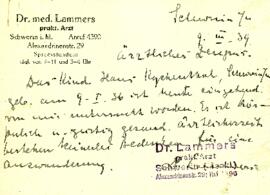 Dr. med. Lammers
prakt. Arzt
Schwerin i. M. Anruf 4390
Alexandrinenstr. 29
Sprechstunden
Schwerin
9. III. 39
Ärztliches Zeugnis.
Das Kind Hans Kychenthal, Schwerin
geb. am 9. I. 36 ist heute eingehend
von mir untersucht worden. Es ist
und geistig gesund. Ärztlicherseits
bestehen keinerlei Bedenken für eine
Auswanderung.
Dr. Lammers
prakt. Arzt
Schwerin
Alexandrinenstr. 29